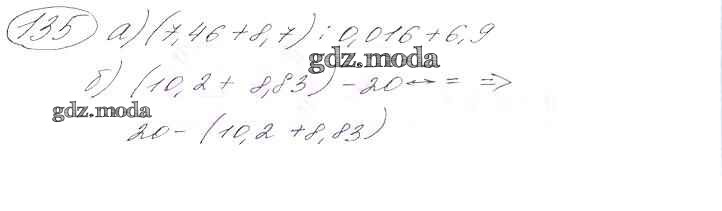 135 а) (7,46 + 8,7) : 0,016 + 6,9
gdz.moda
б) (10,2 + 8,83) - 20 ↔ = ⇒
gdz.moda
20 - (10,2 + 8,83)